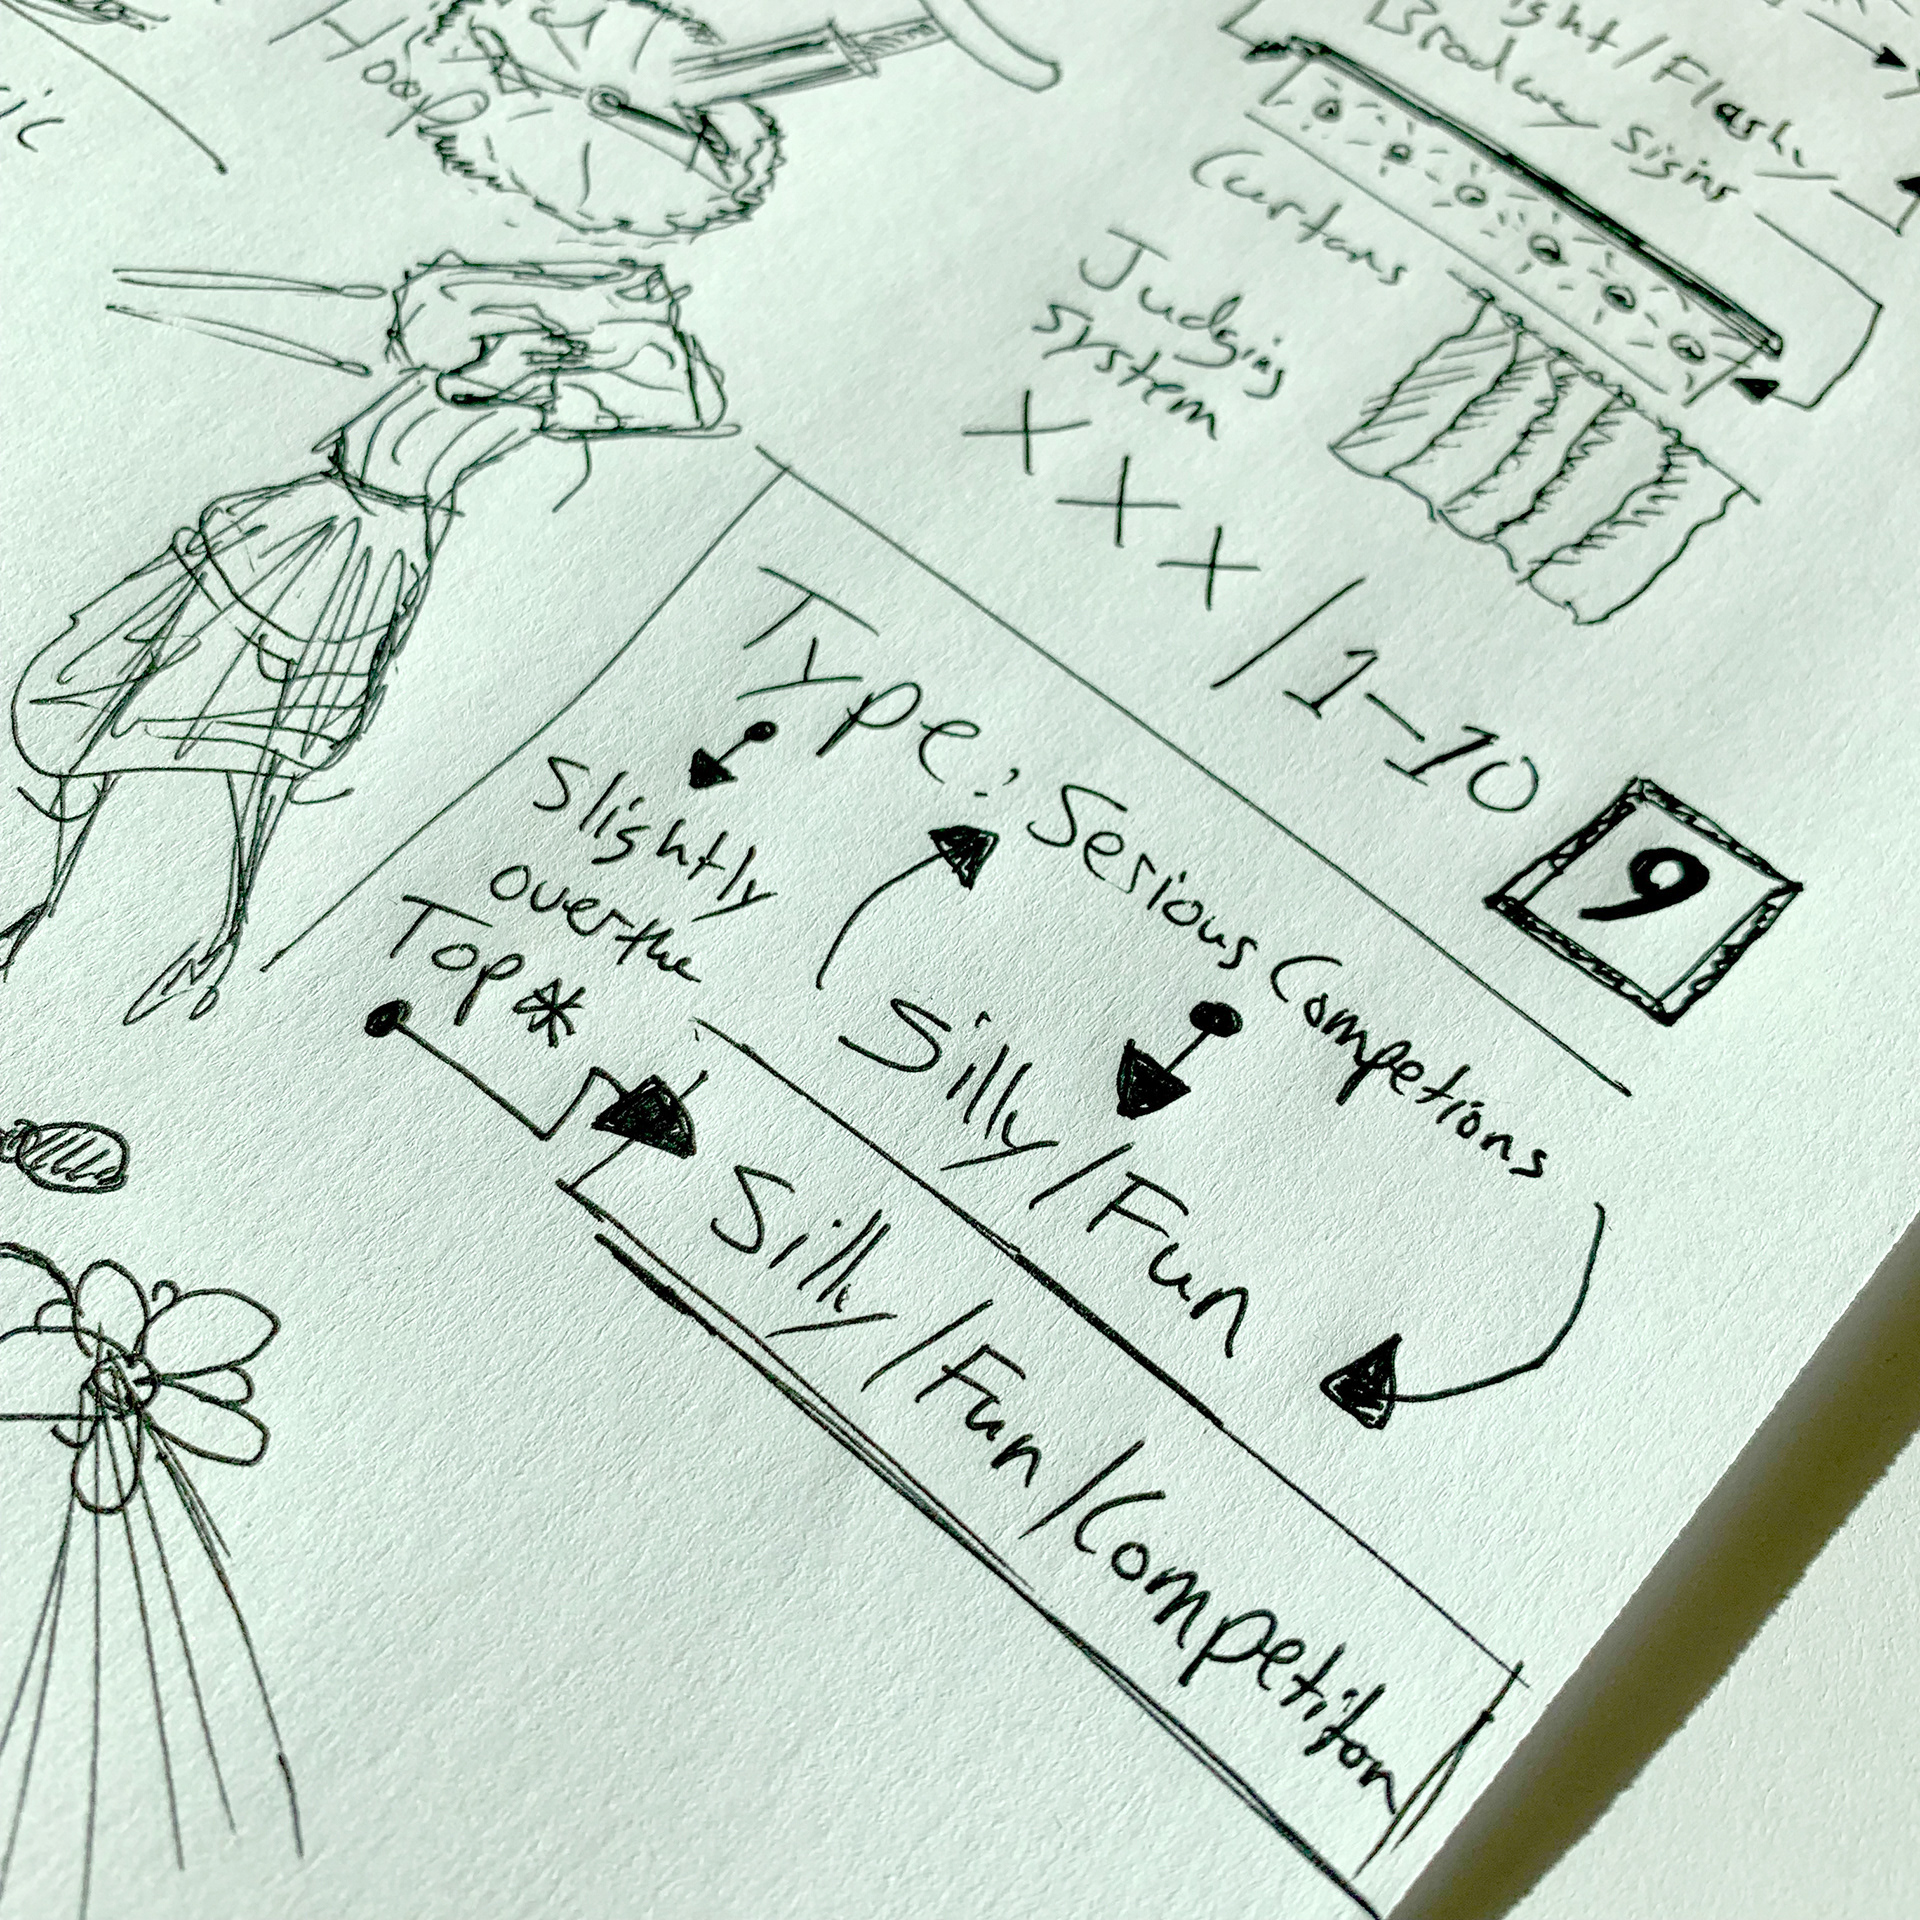 Hoop
ic
ight/Flashy
Brodwey Sisins
Curtans
Judging
System
+ + + / 1-10
9
Type: Serious Competions
Slightly
over the
Top*
Silly/Fun
Silly/Fun/Competiton